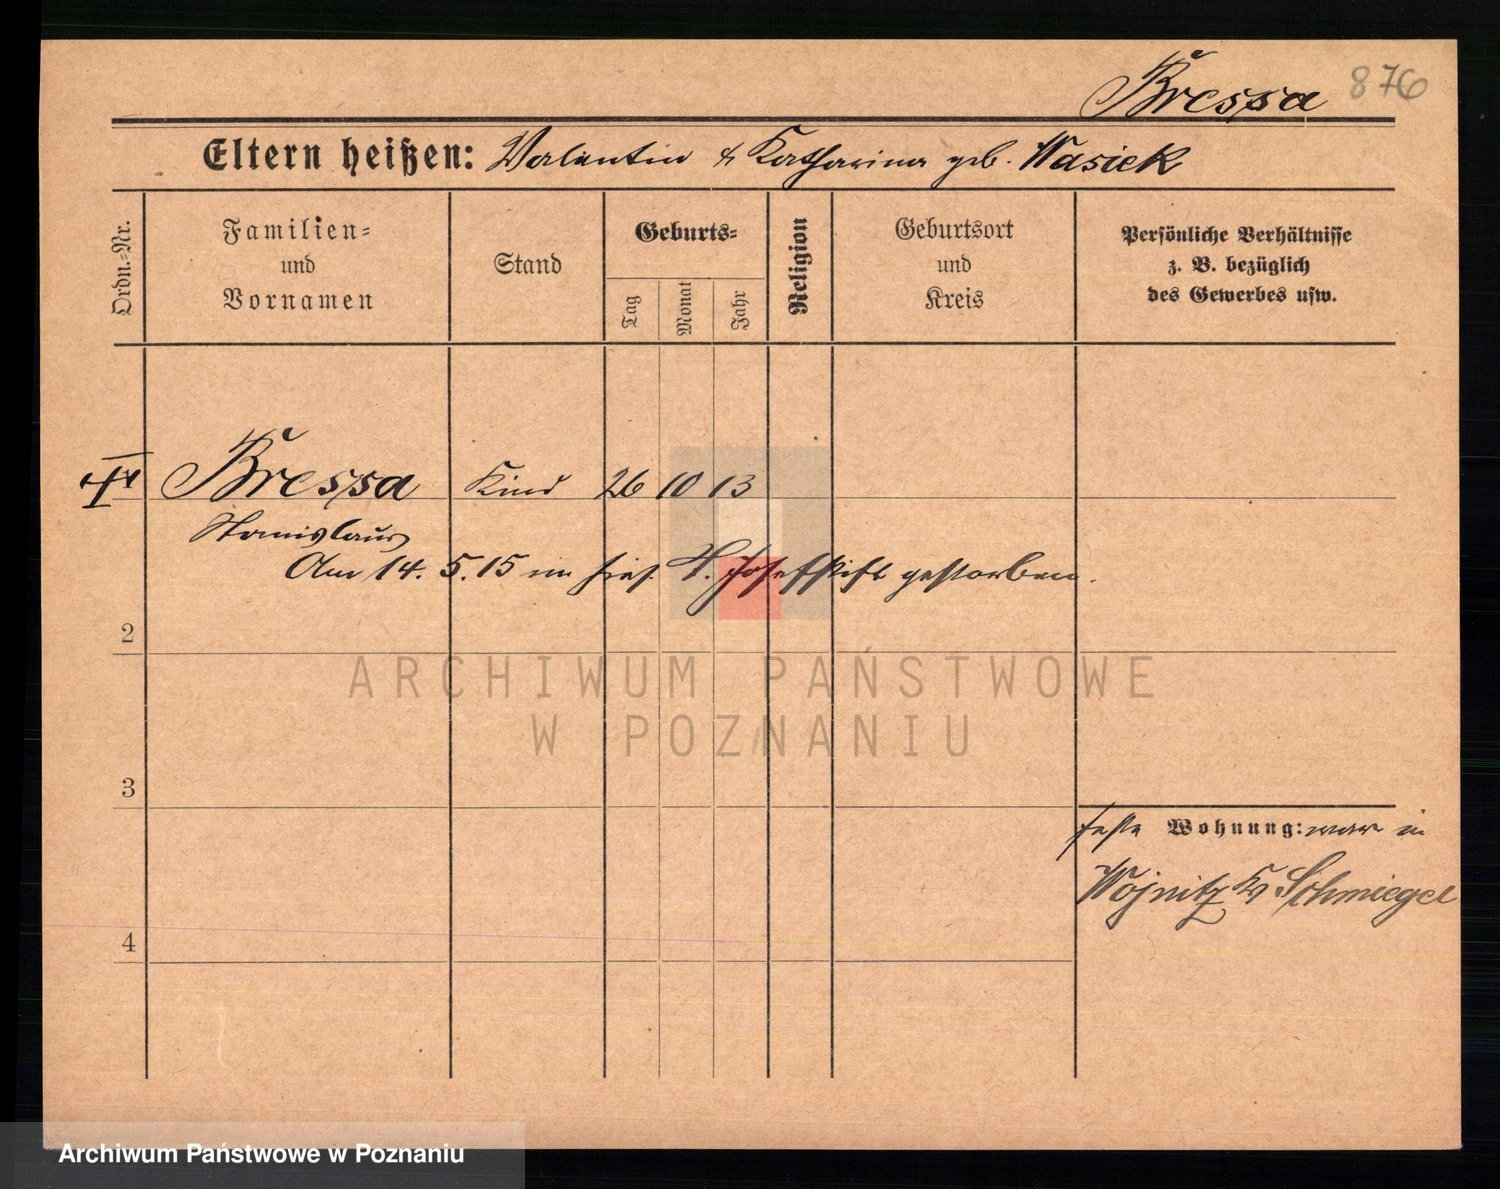 Bressa 876
Eltern heißen: Valentin & Katharina geb. Wasiek
Ordn.=Nr.
Familien=
und
Vornamen
Stand
Geburts=
Tag
Monat
Jahr
Religion
Geburtsort
und
Kreis
Persönliche Verhältnisse
z. B. bezüglich
des Gewerbes usw.
Bressa Kind 26 10 13
Stanislaus
Am 14. 5. 15 im hies. St. Josefstift gestorben.
2
3
4
feste Wohnung: war in
Wojnitz Kr Schmiegel
ARCHIWUM PAŃSTWOWE
W POZNANIU
Archiwum Państwowe w Poznaniu